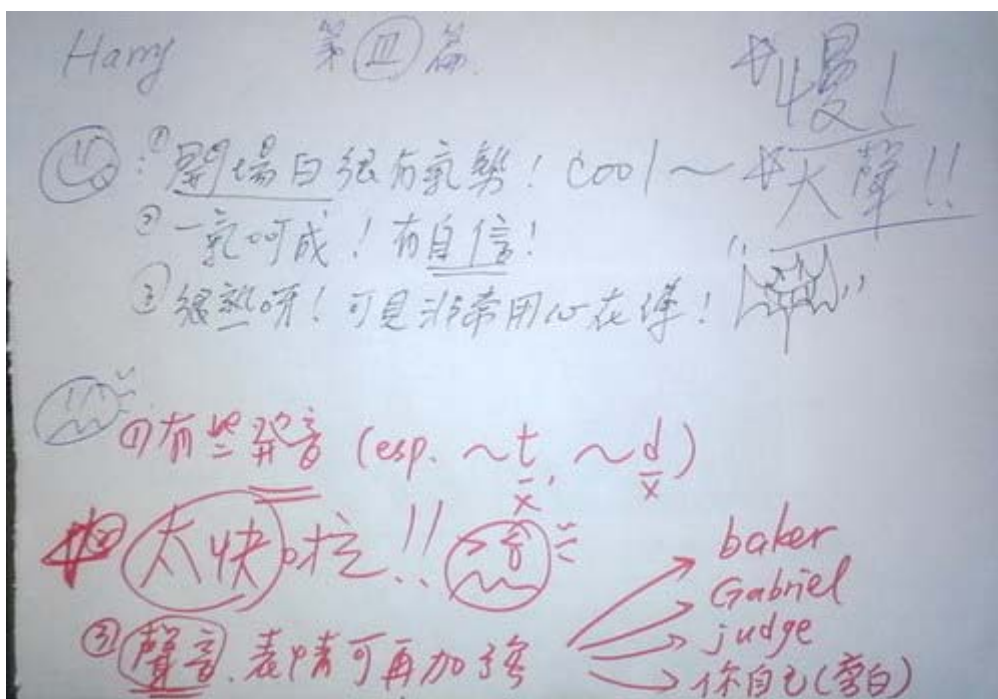 Harry 第Ⅲ篇
慢!
大聲!!
: ① 開場白很有氣勢! cool~
② 一氣呵成! 有自信!
③ 很熟呀! 可見非常用心在準!
① 有些發音 (esp. ~t, ~d)
x x
② 太快啦!!
③ 聲音.表情可再加強
baker
Gabriel
judge
你自己(旁白)